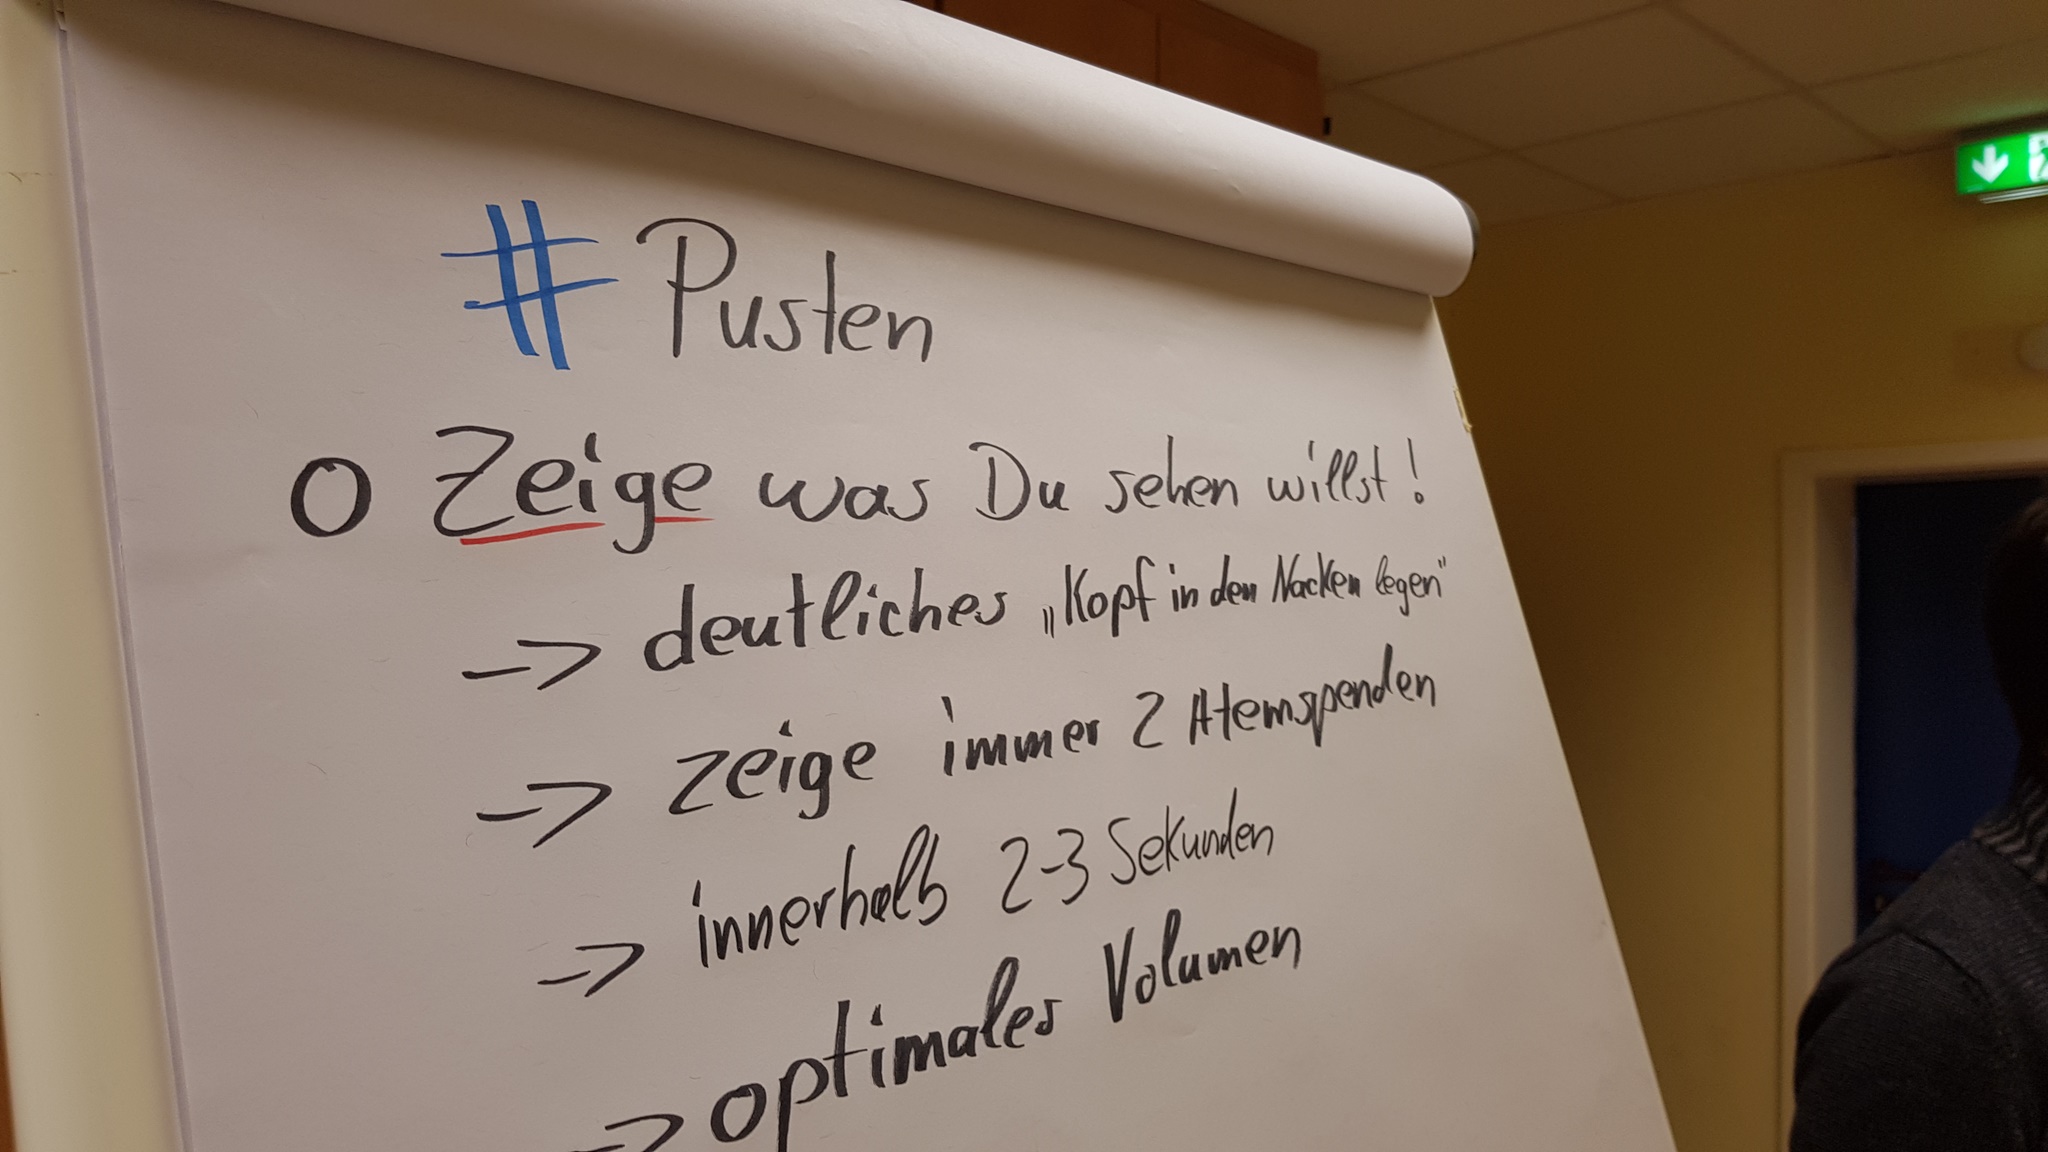 # Pusten
O Zeige was Du sehen willst!
-> deutliches „Kopf in den Nacken legen"
-> zeige immer 2 Atemspenden
-> innerhalb 2-3 Sekunden
-> optimales Volumen